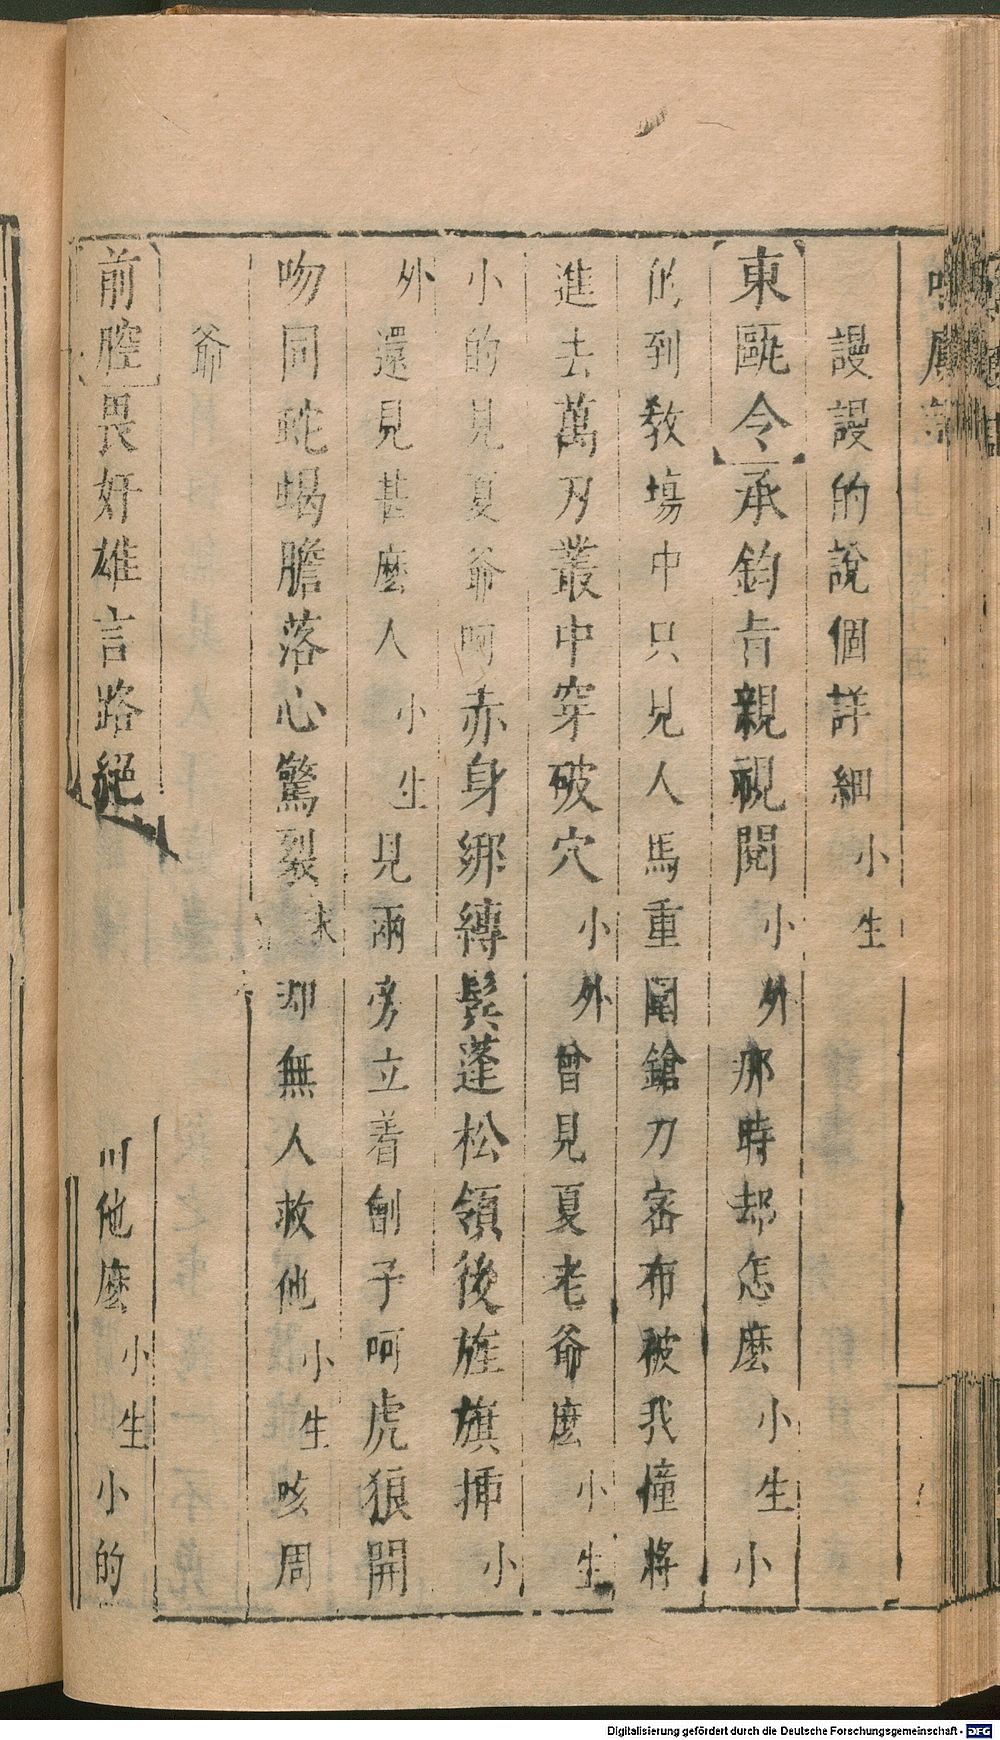 謾謾的說個詳細小生
東甌令承鈞旨親視閱小外那時却怎麼小生小
的到教塲中只見人馬重圍鎗刀密布被我撞將
進去萬刃叢中穿破穴小外曾見夏老爺麼小生
小的見夏爺呵赤身綁縛鬂蓬松領後旌旗挿小
外還見甚麼人小生見兩旁立着劊子呵虎狼開
吻同蛇蝎膽落心驚裂末却無人救他小生咳周
爺
前腔畏奸雄言路絕
他麼小生小的
Digitalisierung gefördert durch die Deutsche Forschungsgemeinschaft - DFG